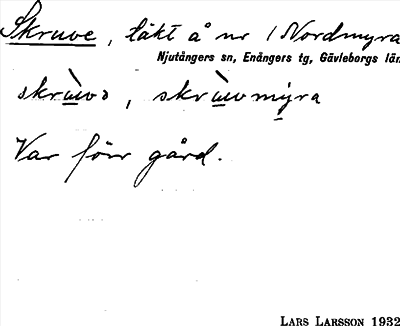 Skruve, täkt å nr 1 Nordmyra
Njutångers sn, Enångers tg, Gävleborgs län
skrùvə, skrùvmyra
Var förr gård.
LARS LARSSON 1932